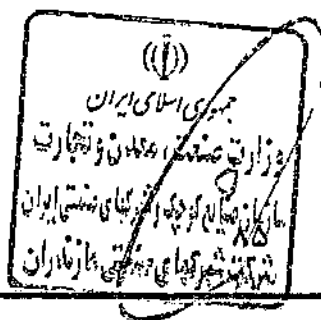 جمهوری اسلامی ایران
وزارت صنعت، معدن و تجارت
سازمان صنایع کوچک و شهرکهای صنعتی ایران
۸۵
شرکت شهرکهای صنعتی مازندران